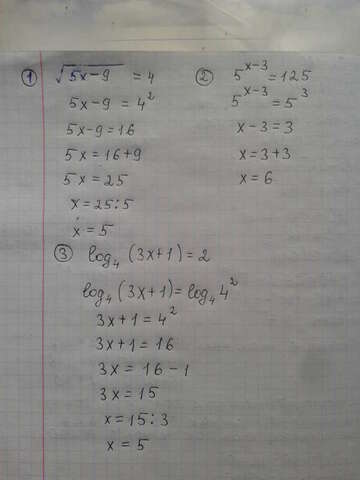 ① √5x-9 = 4
5x-9 = 4²
5x-9=16
5x=16+9
5x=25
x=25:5
x=5
② 5ˣ⁻³=125
5ˣ⁻³=5³
x-3=3
x=3+3
x=6
③ log₄(3x+1)=2
log₄(3x+1)=log₄4²
3x+1=4²
3x+1=16
3x=16-1
3x=15
x=15:3
x=5